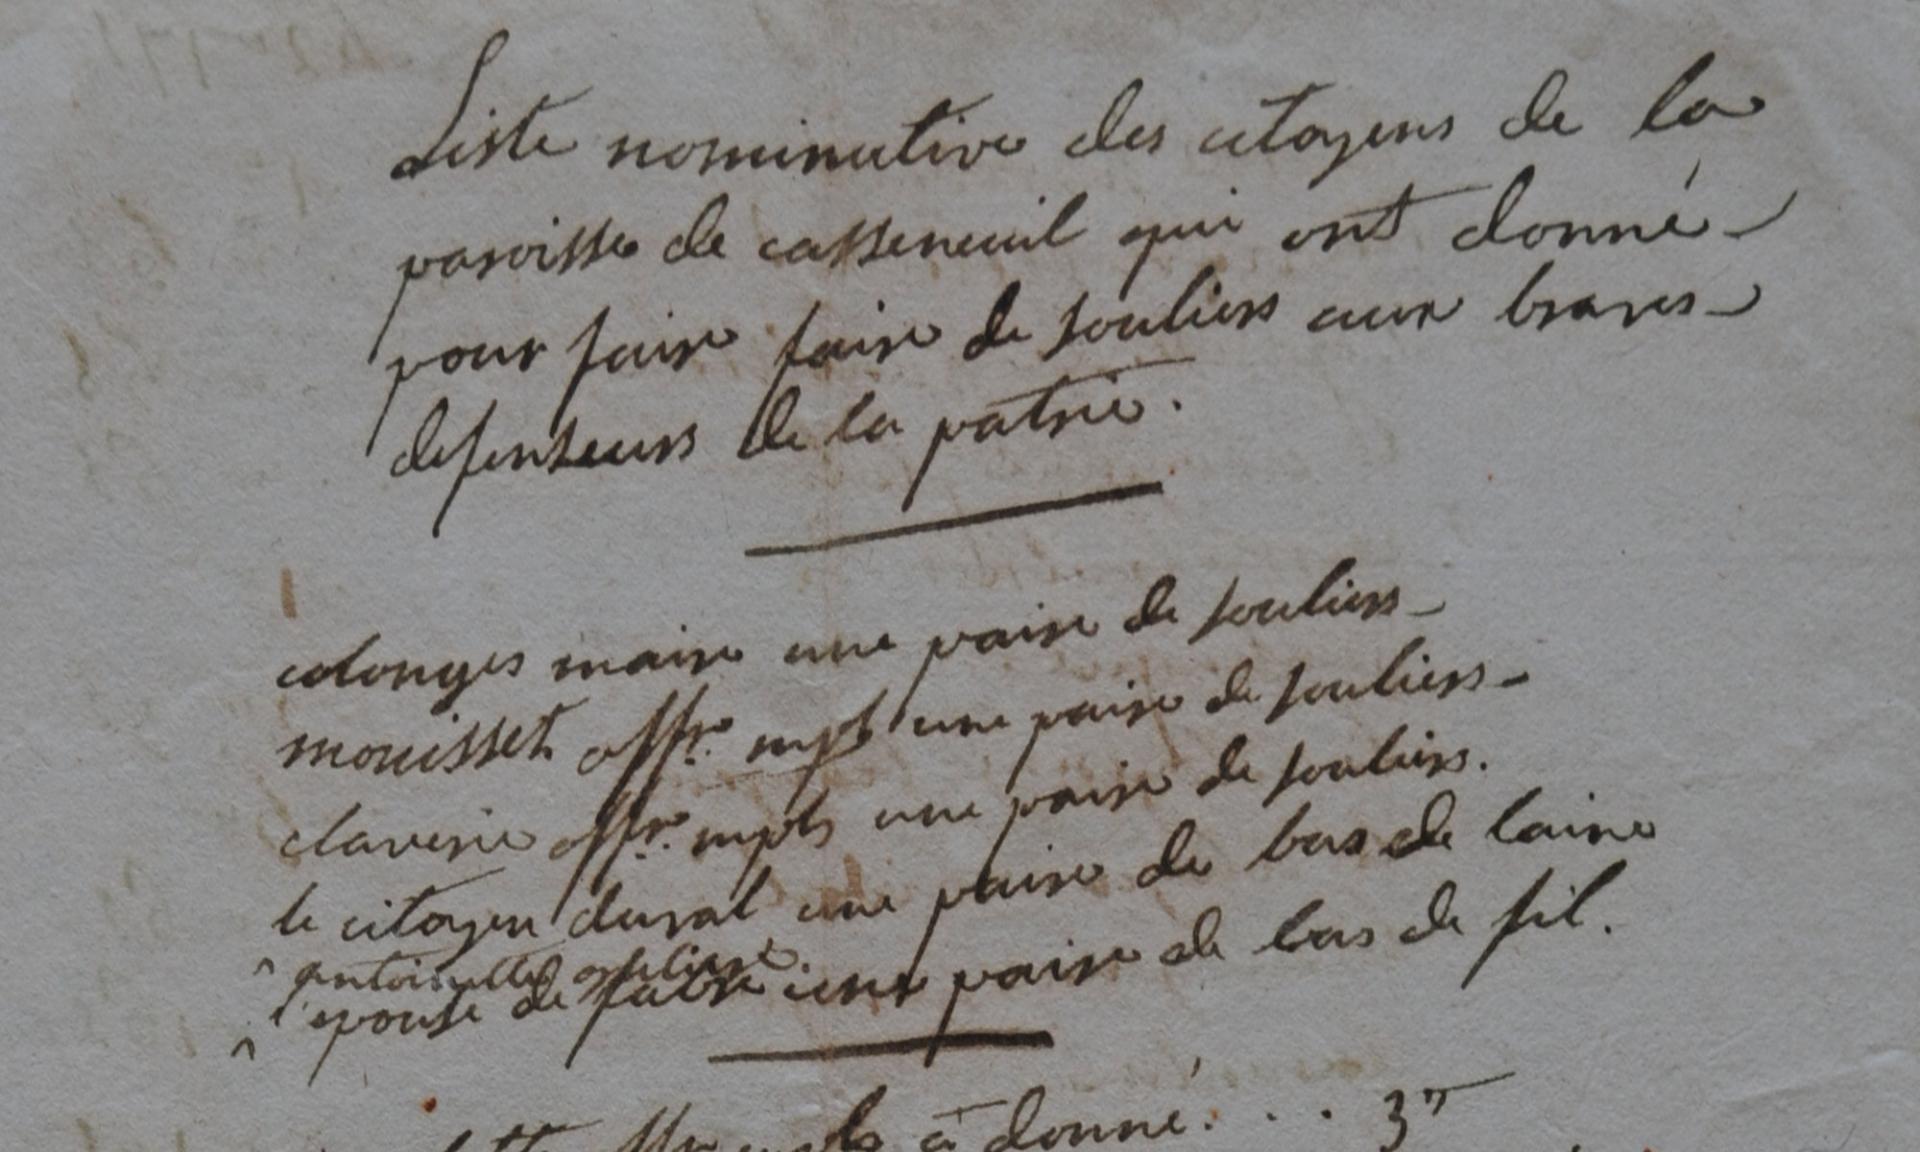 Liste nominative des citoyens de la
paroisse de casseneuil qui ont donné
pour faire faire de souliers aux braves
defenseurs de la patrie.
colonges maire une paire de souliers
mouisset offr. mpl une paire de souliers
claverie offr. mpl une paire de souliers.
le citoyen duval une paire de bas de laine
antoinette
l'epouse de fabre une paire de bas de fil.
offr mpl à donné. . . . 3